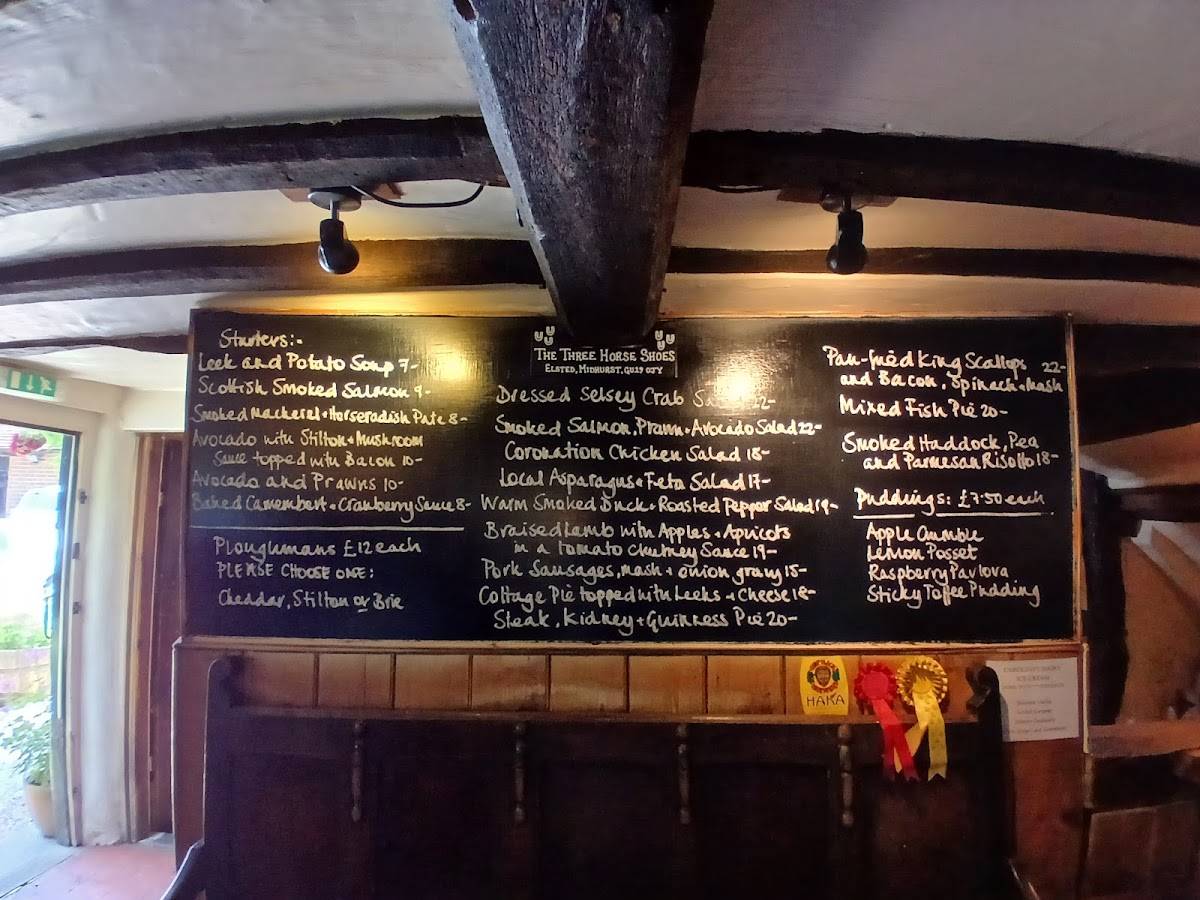 Starters:-
Leek and Potato Soup 7-
Scottish Smoked Salmon 9-
Smoked Mackerel + Horseradish Pate 8-
Avocado with Stilton + Mushroom
Sauce topped with Bacon 10-
Avocado and Prawns 10-
Baked Camembert + Cranberry Sauce 8-
Ploughmans £12 each
PLEASE CHOOSE ONE:
Cheddar, Stilton or Brie
THE THREE HORSE SHOES
ELSTED, MIDHURST, GU29 0JY
Dressed Selsey Crab
Smoked Salmon, Prawn + Avocado Salad 22-
Coronation Chicken Salad 18-
Local Asparagus + Feta Salad 17-
Warm Smoked Duck + Roasted Pepper Salad 19-
Braised Lamb with Apples + Apricots
in a tomato chutney Sauce 19-
Pork Sausages, mash + onion gravy 18-
Cottage Pie topped with Leeks + Cheese 18-
Steak, Kidney + Guinness Pie 20-
Pan-fried King Scallops 22-
and Bacon, Spinach + Mash
Mixed Fish Pie 20-
Smoked Haddock, Pea
and Parmesan Risotto 18-
Puddings: £7.50 each
Apple Crumble
Lemon Posset
Raspberry Pavlova
Sticky Toffee Pudding
HAKA
ICE CREAM